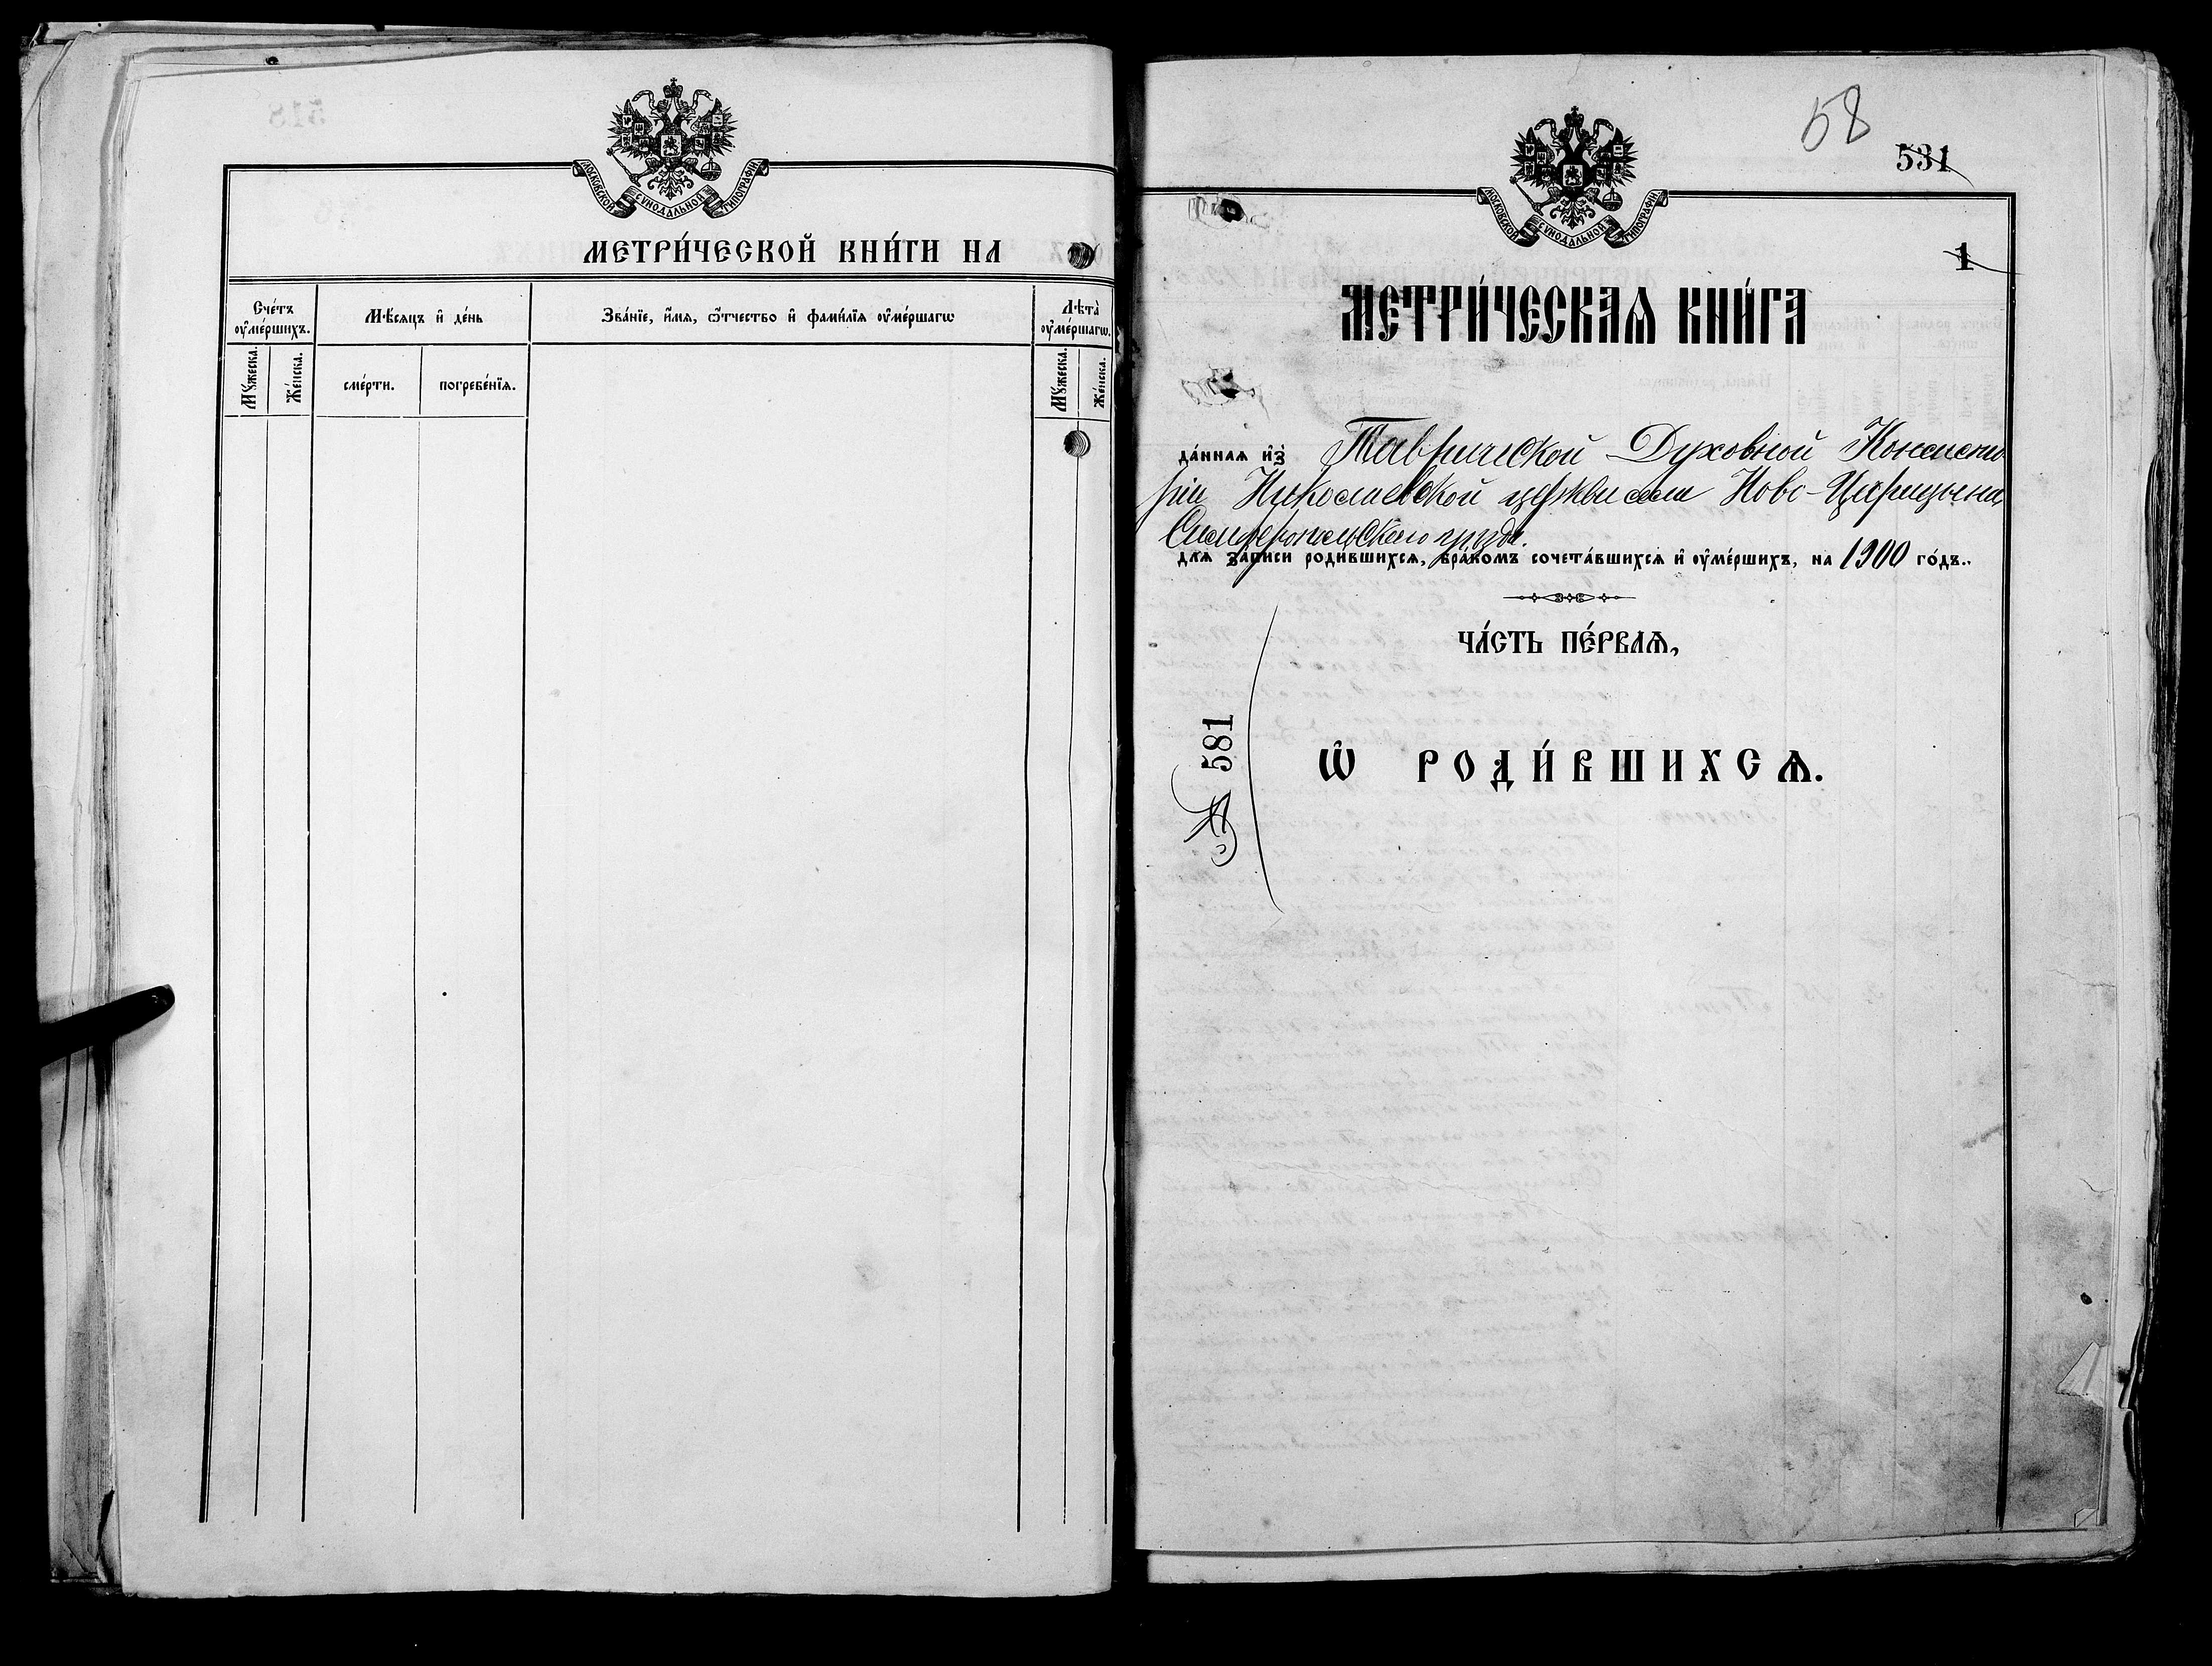 МОСКОВСКОЙ СѴНОДАЛЬНОЙ ТИПОГРАФІИ
МЕТРИ́ЧЕСКОЙ КНИ́ГИ НА
Сче́тъ оу҆ме́ршихъ.
Мѣ́сяцъ и҆ де́нь
Зва́нїе, и҆́мѧ, ѻ҆́тчество и҆ фами́лїѧ оу҆ме́ршагѡ
Лѣ́та оу҆ме́ршагѡ.
Мꙋ́жеска.
Же́нска.
сме́рти.
погребе́нїѧ.
Мꙋ́жеска.
Же́нска.
58
531
МОСКОВСКОЙ СѴНОДАЛЬНОЙ ТИПОГРАФІИ
1
МЕТРИ́ЧЕСКАѦ КНИ́ГА
да́ннаѧ и҆з̾ Таврической Духовной Консисто
ріи Николаевской церкви села Ново-Царицына,
Симферопольскаго уѣзда.
длѧ за́писи роди́вшихсѧ, бра́комъ сочета́вшихсѧ и҆ оу҆ме́ршихъ, на 1900 го́дъ.
ЧА́СТЬ ПЕ́РВАѦ,
№ 581
Ѡ҆ РОДИ́ВШИХСѦ.